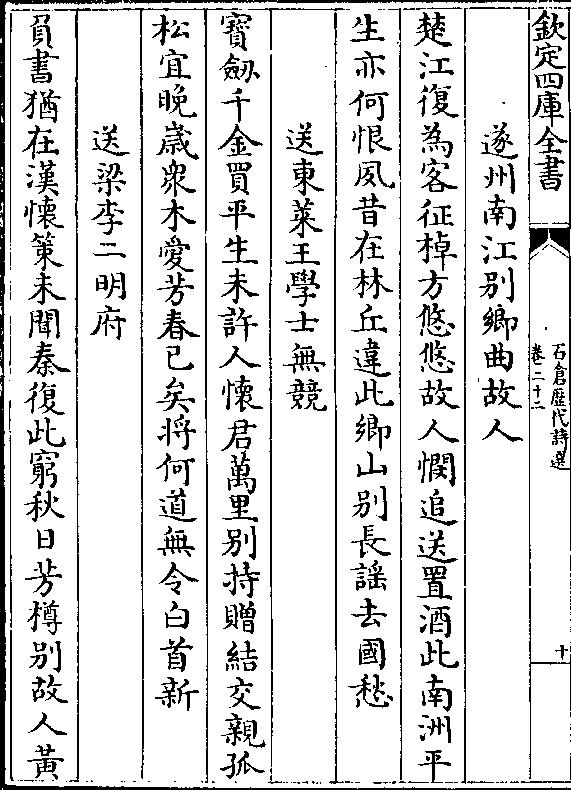 欽定四庫全書
石倉歷代詩選
卷二十二
十
遂州南江别鄉曲故人
楚江復為客征棹方悠悠故人憫追送置酒此南洲平
生亦何恨夙昔在林丘違此鄉山别長謡去國愁
送東萊王學士無競
寳劒千金買平生未許人懷君萬里别持贈結交親孤
松宜晩歳衆木愛芳春已矣將何道無令白首新
送梁李二明府
負書猶在漢懷策未聞秦復此窮秋日芳樽别故人黄